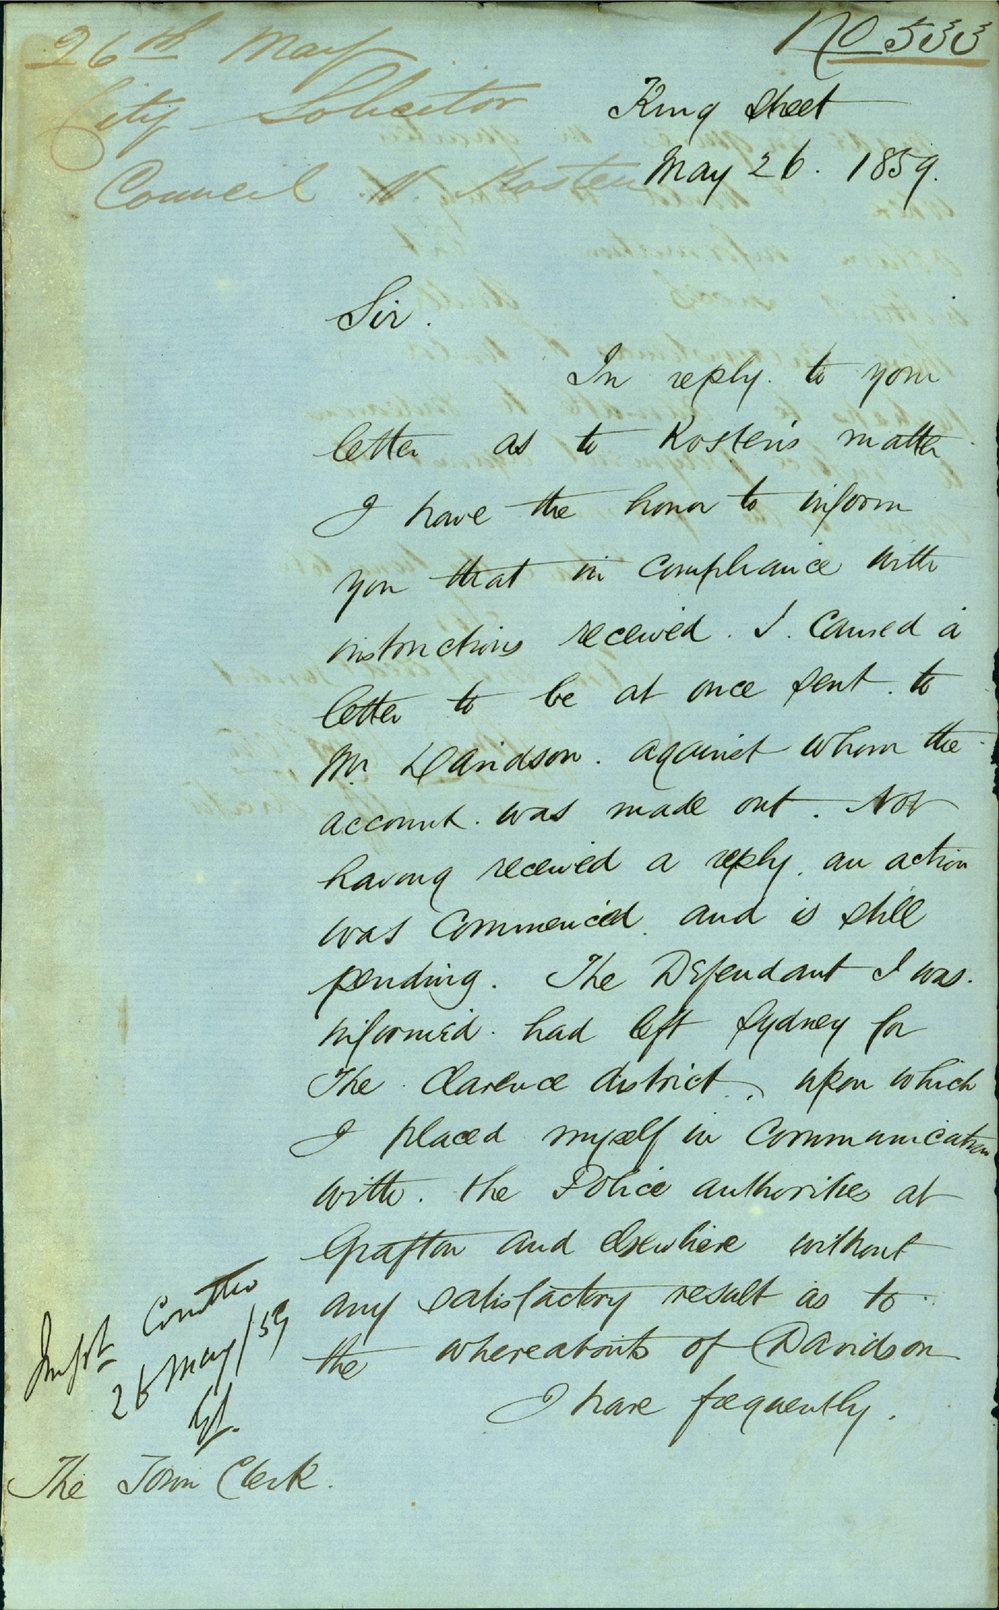 No 533
26th May
City Solicitor
Council V. Kosten
King Street
May 26. 1859.
Sir.
In reply to your
letter as to Kosten's matter
I have the honor to inform
you that in compliance with
instructions received. I. Caused a
letter to be at once sent. to
Mr Davidson. against whom the
account. was made out. Not
having received a reply. an action
was Commenced. and is still
pending. The Defendant I was.
informed. had left Sydney for
The Clarence district, upon which
I placed myself in Communication
with. the Police authorities at
Grafton and elsewhere without
any satisfactory result as to.
the whereabouts of Davidson
I have frequently.
Committee
26 May/59
The Town Clerk.